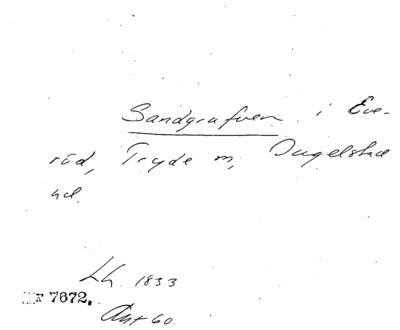 Sandgrafven i Eve-
röd, Tryde m, Ingelstad
hd.
Lh. 1833
7672.
Ant 60.